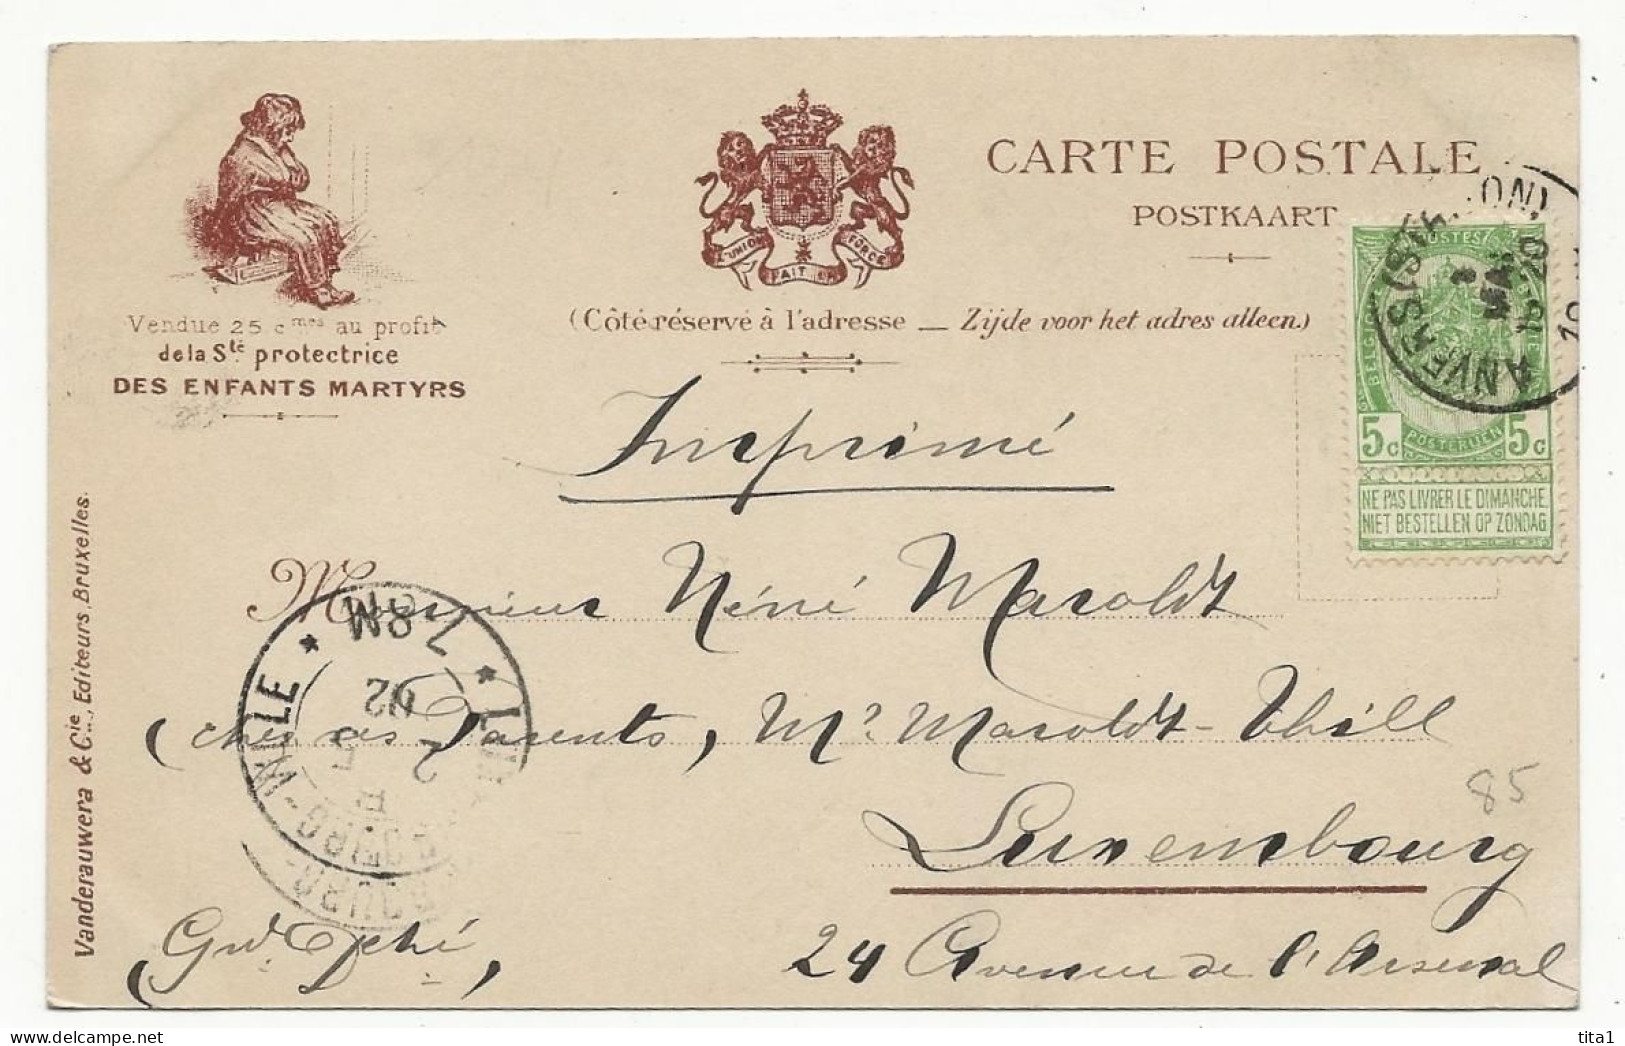 CARTE POSTALE
POSTKAART
L'UNION FAIT LA FORCE
Vendue 25 cmes au profit
de la Sté protectrice
DES ENFANTS MARTYRS
(Côté réservé à l'adresse — Zijde voor het adres alleen.)
POSTES
BELGIQUE
BELGIË
5c POSTERIJEN 5c
NE PAS LIVRER LE DIMANCHE
NIET BESTELLEN OP ZONDAG
ANVERS
20
Imprimé
Monsieur Réné Maroldt
(chez ses Parents, Mr Maroldt-Thill
Luxembourg
(Gd Dché),
24 Avenue de l'Arsenal
7-8M
02
VILLE
85
Vanderauwera & Cie, Editeurs, Bruxelles.
delcampe.net
tita1